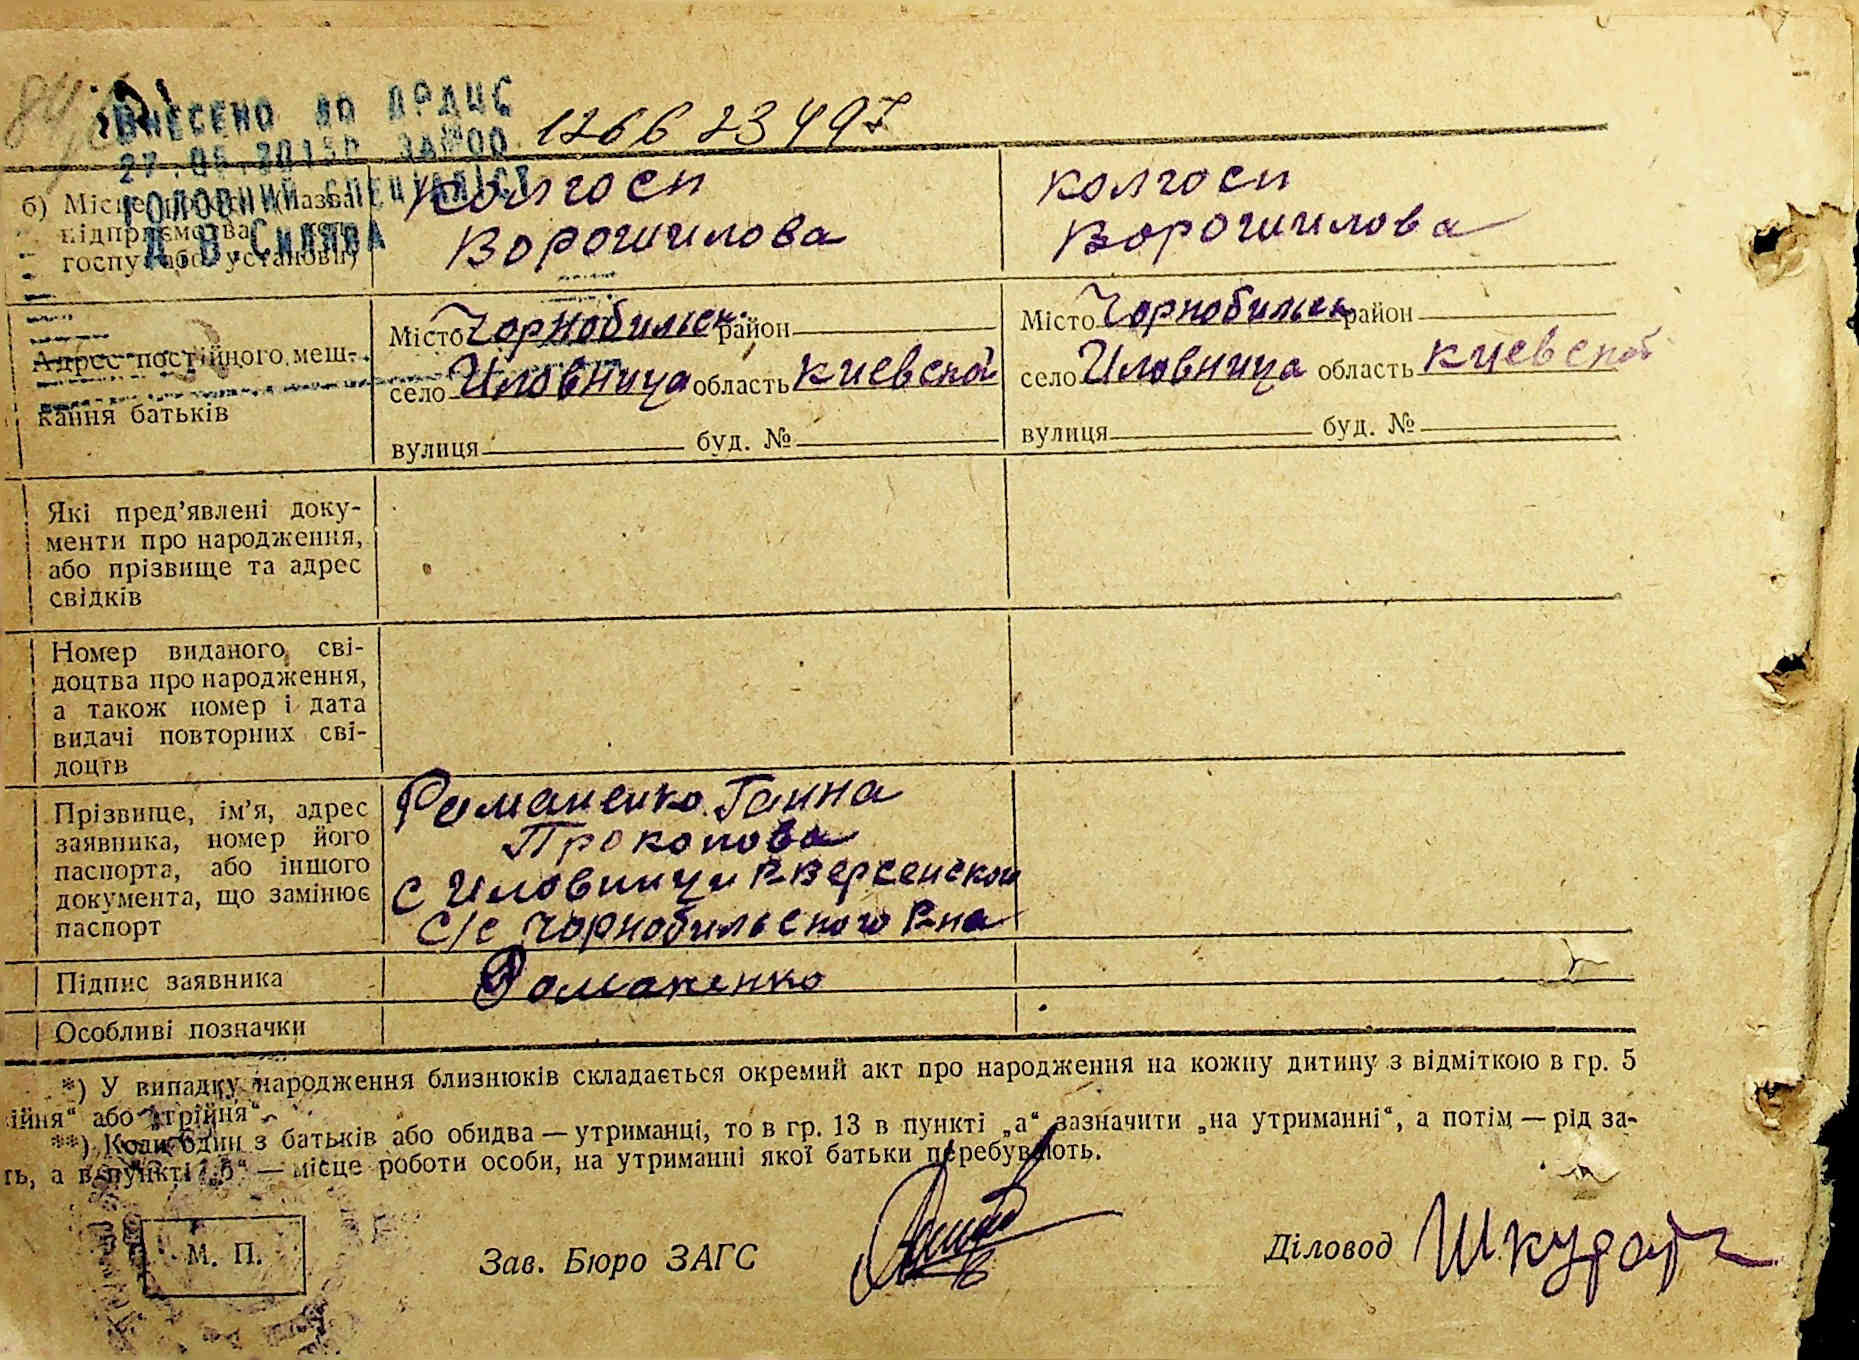 ВНЕСЕНО ДО ДРАЦС 1266 23497
27.05.2015р ЗА №00
ГОЛОВНИЙ СПЕЦІАЛІСТ
Д.В.
б) Місце (назва колгосп колгосп
підприємства, Ворошилова Ворошилова
госпу або установи)
Адрес постійного меш- Місто Чорнобильск район Місто Чорнобильск район
кання батьків село Иловница область Киевской село Иловница область Киевской
вулиця буд. № вулиця буд. №
Які пред’явлені доку-
менти про народження,
або прізвище та адрес
свідків
Номер виданого сві-
доцтва про народження,
а також номер і дата
видачі повторних сві-
доцтв
Прізвище, ім’я, адрес Романенко Ганна
заявника, номер його Прокопова
паспорта, або іншого с Иловници
документа, що замінює с/с Чорнобильского Р-на
паспорт
Підпис заявника Романенко
Особливі позначки
*) У випадку народження близнюків складається окремий акт про народження на кожну дитину з відміткою в гр. 5
ійня“ або „трійня“.
**) Коли один з батьків або обидва — утриманці, то в гр. 13 в пункті „а“ зазначити „на утриманні“, а потім — рід за-
ть, а в пункті „б“ — місце роботи особи, на утриманні якої батьки перебувають.
М. П. Зав. Бюро ЗАГС Діловод Шкурат